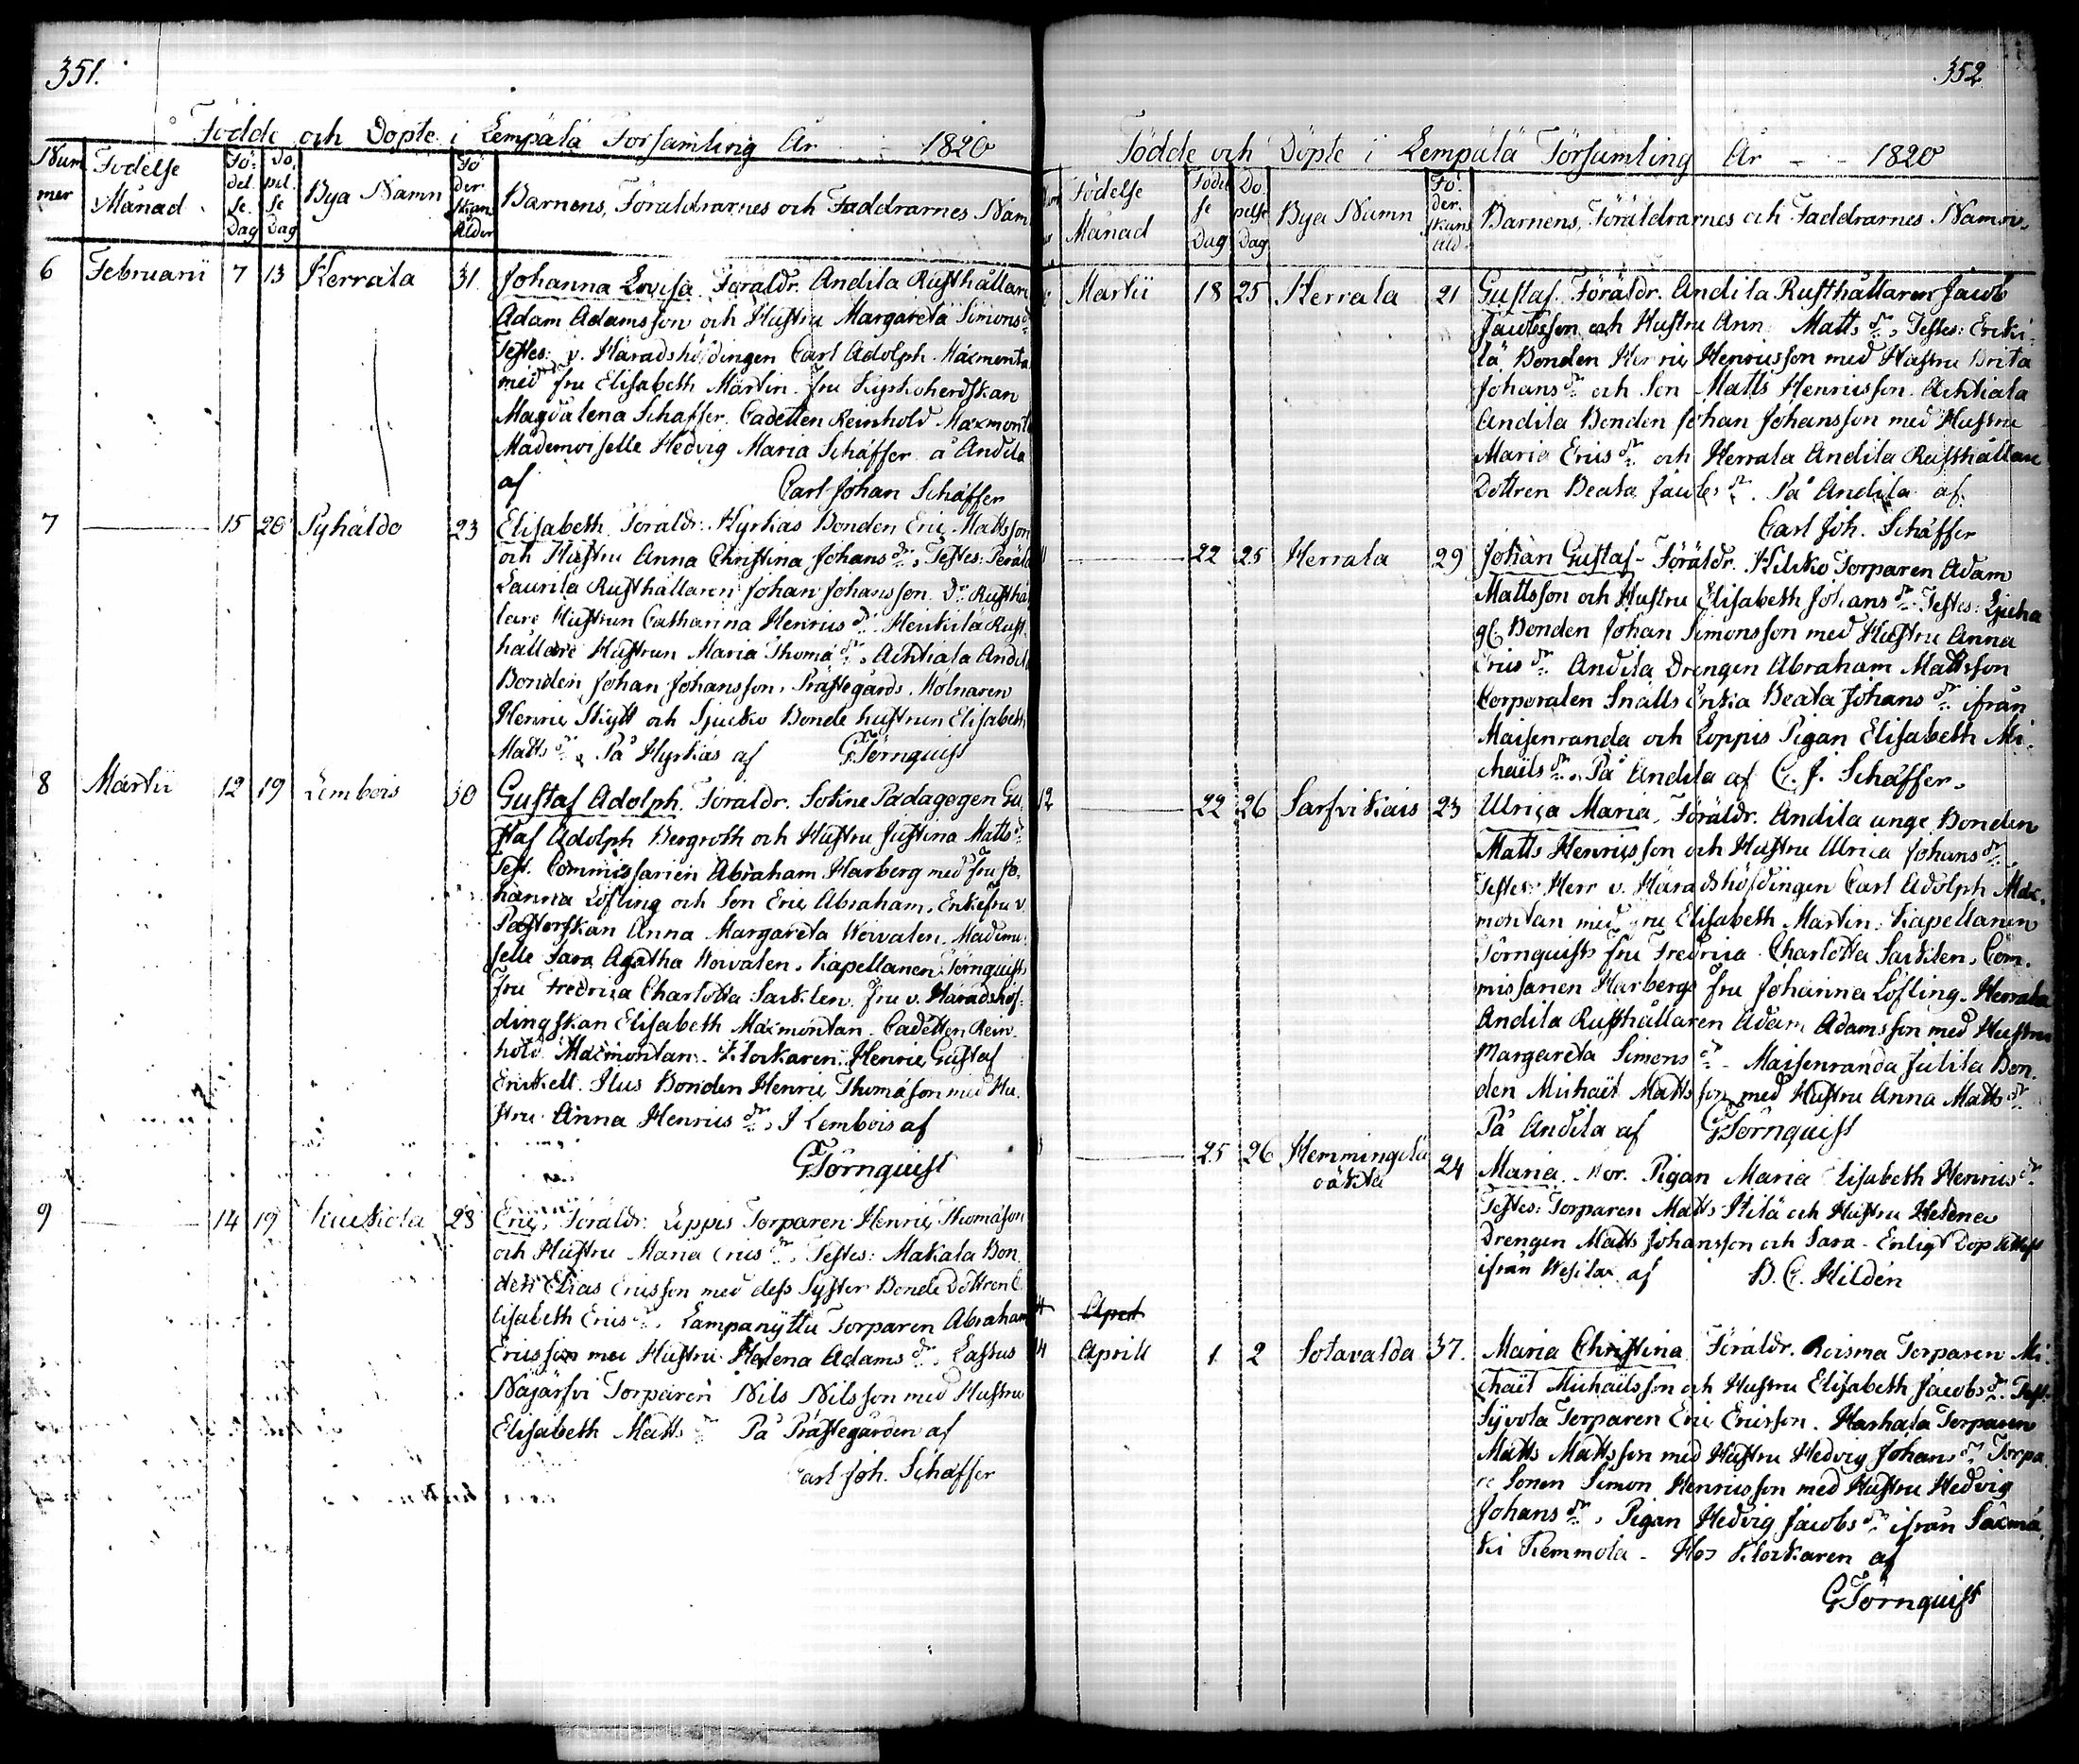 351.
Födde och Döpte i Lempälä Församling År 1820
Num mer
Födelse Månad
Fö del se Dag
Dö pel se Dag
Bya Namn
Fö der skans Ålder
Barnens, Föräldrarnes och Faddrarnes Nam
6 Februarii 7 13 Herrala 31. Johanna Lovisa. Föräldr. Andila Rusthållare
Adam Adamsson och Hustru Margareta Simons dr
Testes: v. Häradshöfdingen Carl Adolph Maxmonta
med fru Elisabeth Martin. fru Kyrkoherdskan
Magdalena Schæffer. Cadetten Reinhold Maxmont
Mademoiselle Hedvig Maria Schæffer å Andila
af Carl Johan Schæffer
7 15 20 Pyhäldö 23 Elisabeth. Föräldr. Hyrkäs Bonden Eric Mattsson
och Hustru Anna Christina Johans dr, Testes:
Laurila Rusthållaren Johan Johansson. Do Rusthål
lare Hustrun Catharina Henrics dr. Heikilä Rust
hållare Hustrun Maria Thoma dr, Achtiala Andil
Bonden Johan Johansson, Prästegårds Mölnaren
Henric Skytt och Sjucko Bonde hustrun Elisabeth
Matts dr. På Hyrkäs af G Törnquist
8 Martii 12 19 Lembois 30 Gustaf Adolph. Föräldr. Sokne Pædagogen Gu
staf Adolph Bergroth och Hustru Justina Matts dr
Test. Commissarien Abraham Harberg med fru Jo
hanna Löfling och Son Eric Abraham. Enkefru v.
Pastorskan Anna Margareta Wovalen. Mademoi
selle Sara Agatha Wovalen. Kapellanen Törnquists
Fru Fredrica Charlotta Sacklen. Fru v. Häradshöf
dingskan Elisabeth Maxmontan. Cadetten Rein
hold Maxmontan. Klockaren Henric Gustaf
Enckell. Ilus Bonden Henric Thomasson med Hu
stru Anna Henrics dr, I Lembois af
G Törnquist
9 14 19 Kuckola 28 Eric, Föräldr. Loppis Torparen Henric Thomasson
och Hustru Maria Erics dr, Testes: Makala Bon
den Elias Ericsson med dess Syster Bonde Dottren E
lisabeth Erics dr. Lampanyttu Torparen Abraham
Ericsson med Hustru Helena Adams dr, Lassus
Najärfvi Torparen Nils Nilsson med Hustru
Elisabeth Matts dr På Prästegården af
Carl Joh. Schæffer
352
Födde och Döpte i Lempälä Församling År 1820
Födelse Månad
Födel se Dag
Dö pelse Dag
Bya Namn
Fö der skans Åld.
Barnens, Föräldrarnes och Faddrarnes Namn.
Martii 18 25 Herrala 21 Gustaf. Föräldr. Andila Rusthållaren Jacob
Jacobsson och Hustru Ann Matts dr, Testes: Ericki
lä Bonden Henric Henricsson med Hustru Brita
Johans dr och Son Matts Henricsson. Achtiala
Andila Bonden Johan Johansson med Hustru
Maria Erics dr och Herrala Andila Rusthållare
Dottren Beata Jacobs dr. På Andila af
Carl Joh. Schæffer
22 25 Herrala 29 Johan Gustaf. Föräldr. Kilcko Torparen Adam
Mattsson och Hustru Elisabeth Johans dr Testes:
Bonden Johan Simonsson med Hustru Anna
Erics dr Andila Drengen Abraham Mattsson
Corporalen Snälls Enka Beata Johans dr ifrån
Maisenranda och Loppis Pigan Elisabeth Mi
chaels dr, På Andila af C. J. Schæffer.
12 22 26 Sarfvikais 23 Ulrica Maria, Föräldr. Andila unge Bonden
Matts Henricsson och Hustru Ulrica Johans dr
Testes: Herr v. Häradshöfdingen Carl Adolph Max
montan med fru Elisabeth Martin. Kapellanen
Törnquists fru Fredrica Charlotta Sacklen, Com
missarien Harbergs fru Johanna Löfling. Herrala
Andila Rusthållaren Adam Adamsson med Hustru
Margareta Simons dr. Maisenranda Julila Bon
den Michaël Mattsson med Hustru Anna Matts dr
På Andila af G Törnquist
25 26 Hemmingilä 24 Maria. Mor. Pigan Maria Elisabeth Henrics dr
Testes: Torparen Matts Kilä och Hustru Helena
Drengen Matts Johansson och Sara. Enligt Dop attest
ifrån Wesilax af B. C. Hildén
April
14 Aprill 1 2 Sotavalda 37. Maria Christina Föräldr. Roisma Torparen Mi
chaël Michaëlsson och Hustru Elisabeth Jacobs dr. Test.
Syvola Torparen Eric Ericsson. Harhala Torparen
Matts Mattsson med Hustru Hedvig Johans dr Torpa
re Sonen Simon Henricsson med Hustru Hedvig
Johans dr, Pigan Hedvig Jacobs dr ifrån Säxmä
ki Kemmola. Hos Klockaren af
G Törnquist